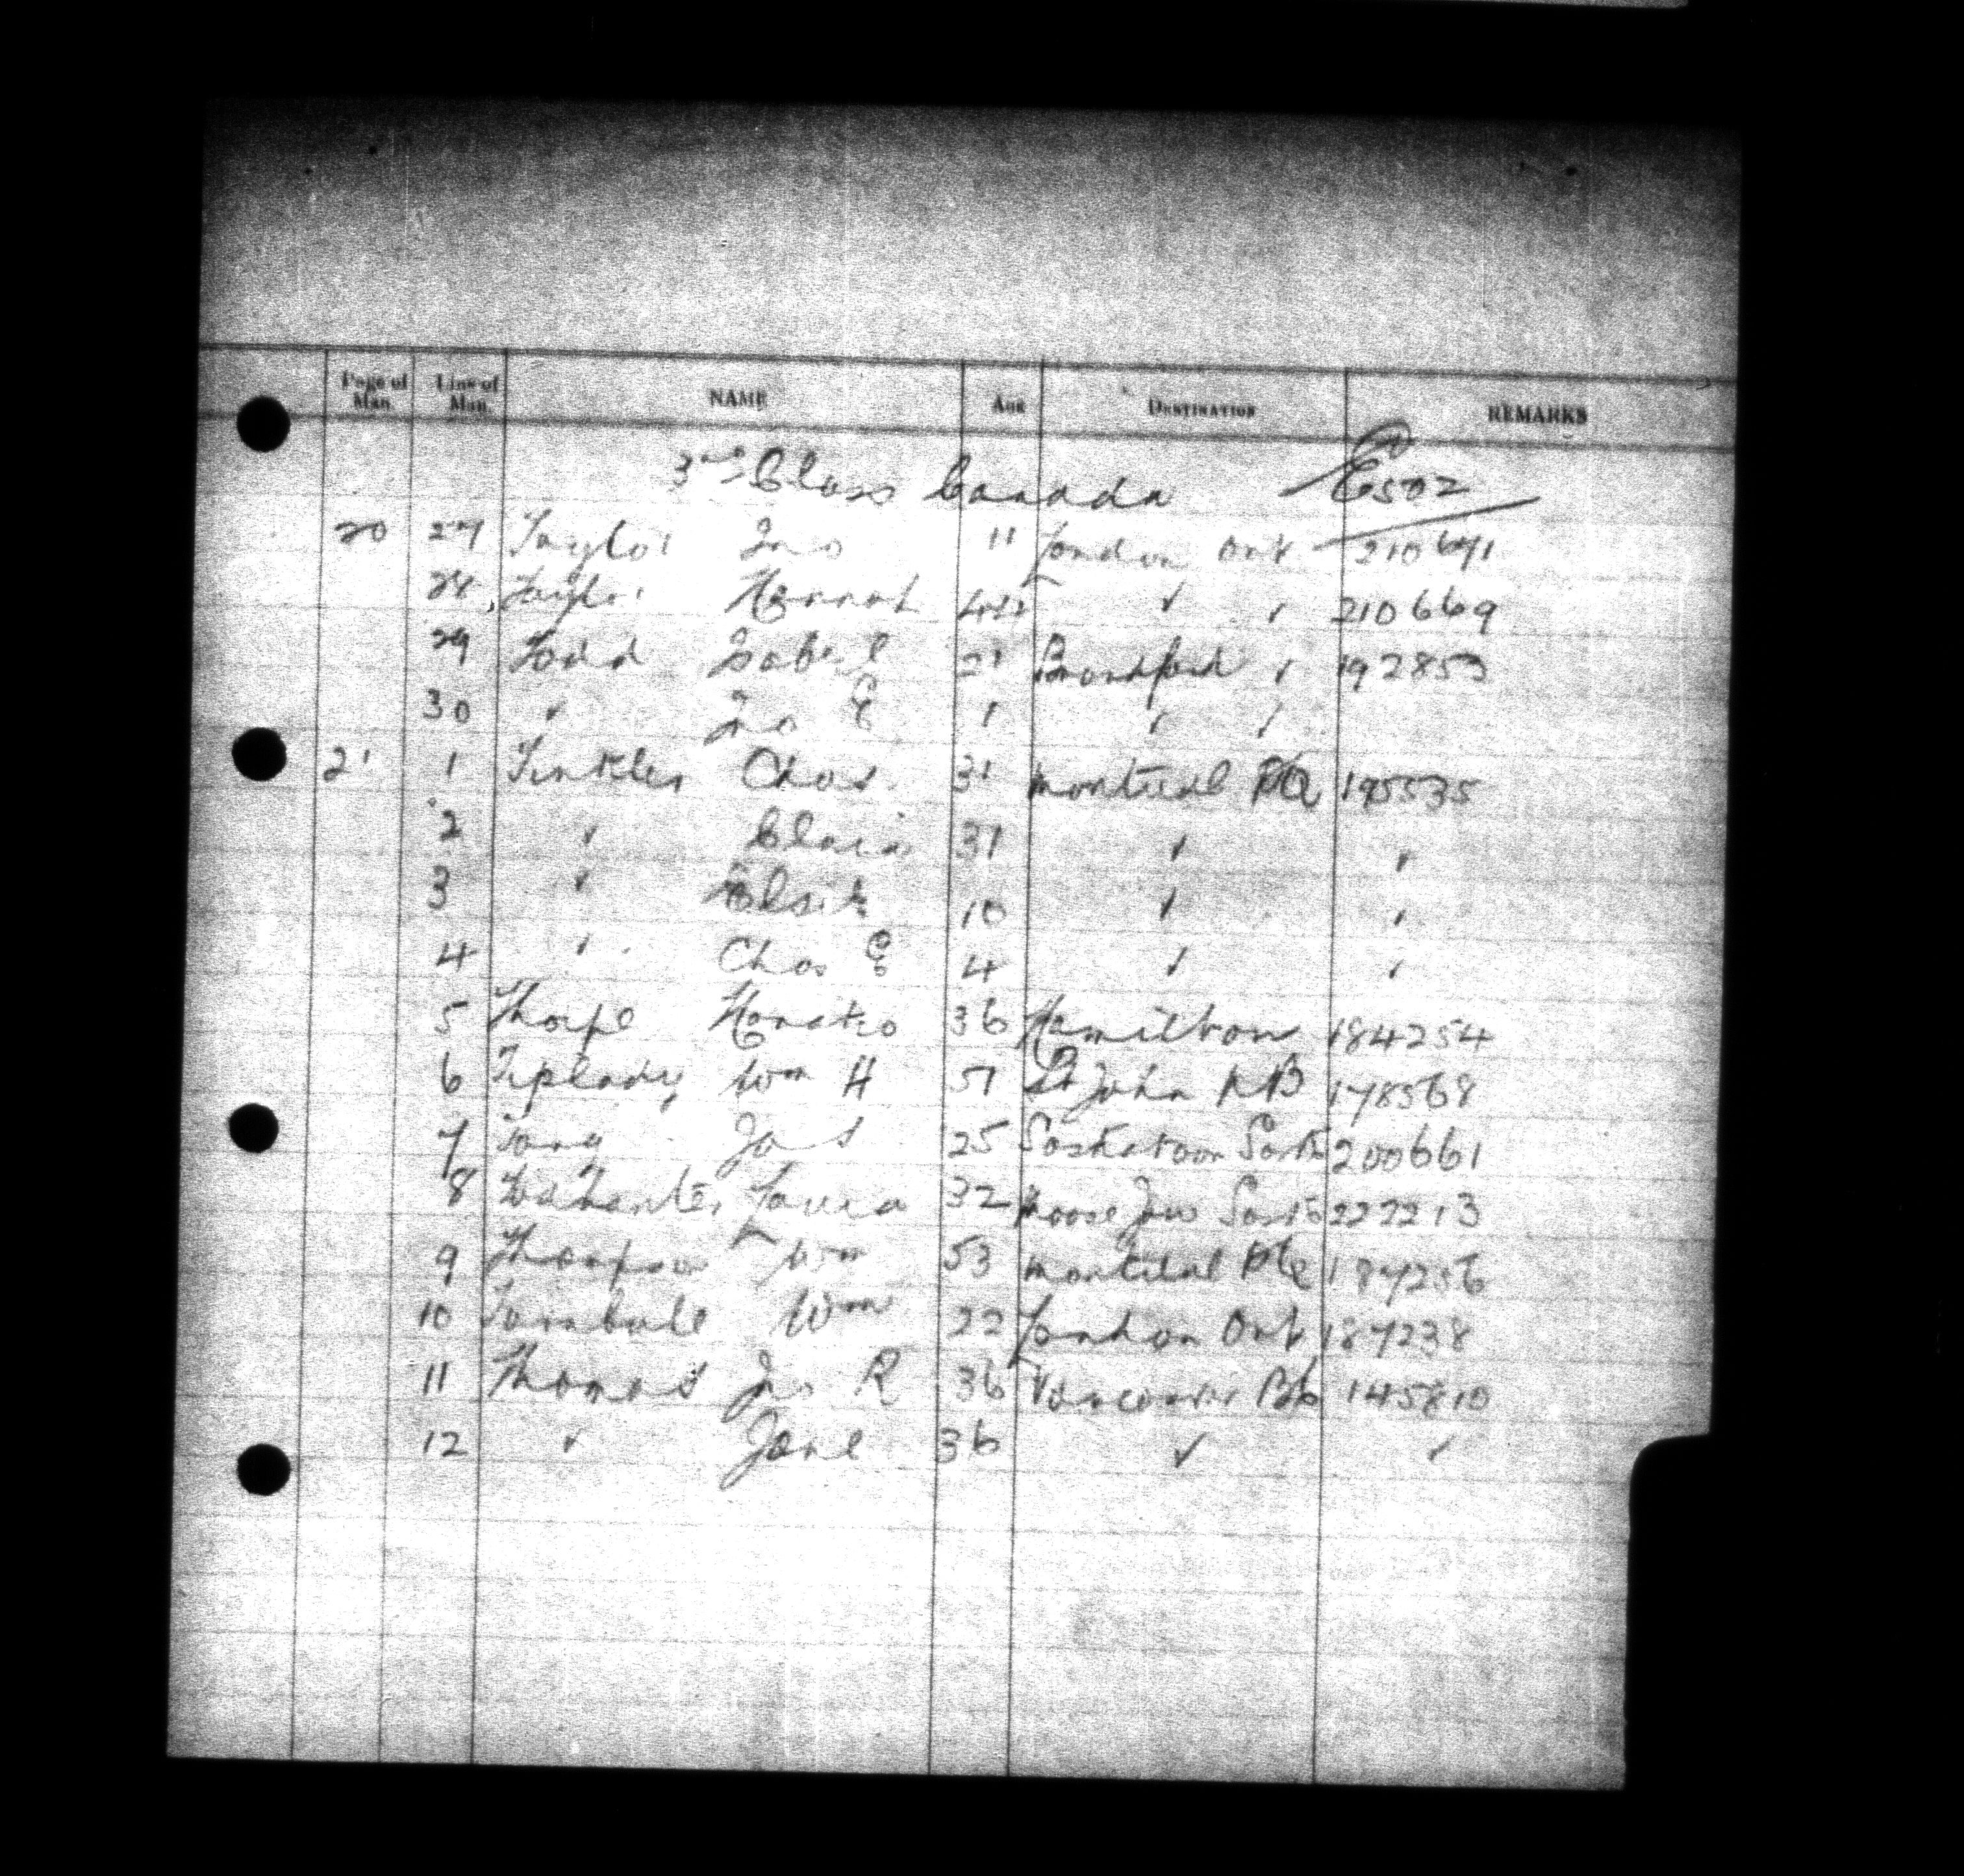 Page of Man. Line of Man. NAME AGE DESTINATION REMARKS
3rd Class Canada E502
20 27 Taylor Jno 11 London Ont 210671
28 Taylor Hannah ✓ ✓ 210669
29 Todd Isabel 21 Brantford ✓ 192853
30 ✓ Jno E 1 ✓ ✓
21 1 Tinkler Chas. 31 Montreal PQ 195535
2 ✓ Clara 31 ✓ ✓
3 ✓ Elsie 10 ✓ ✓
4 ✓ Chas E 4 ✓ ✓
5 Thorpe Horatio 36 Hamilton 184254
6 Tiplady Wm H 51 St John NB 178568
7 Jas 25 Saskatoon Sask 200661
8 Laura 32 Moose Jaw Sask 222213
9 Thompson Wm 53 Montreal PQ 187256
10 Turnbull Wm 22 London Ont 187238
11 Thomas Jno R 36 Vancouver BC 145810
12 ✓ Jane 36 ✓ ✓